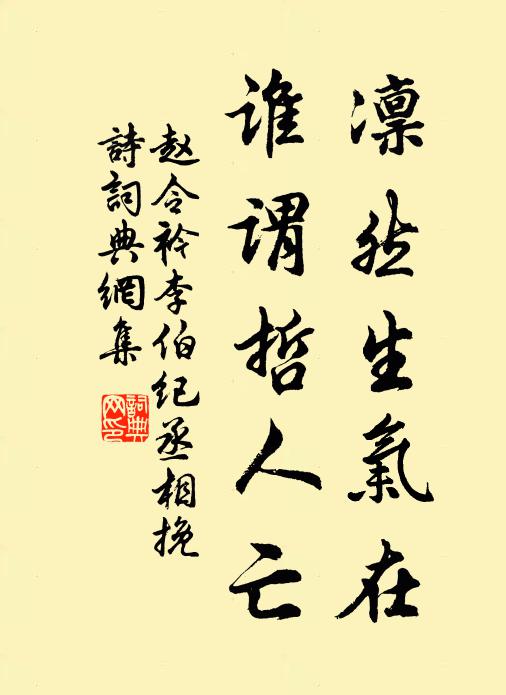 凛然生氣在
谁謂哲人亡
赵令衿李伯纪丞相挽
詩詞典網集
詞典网印